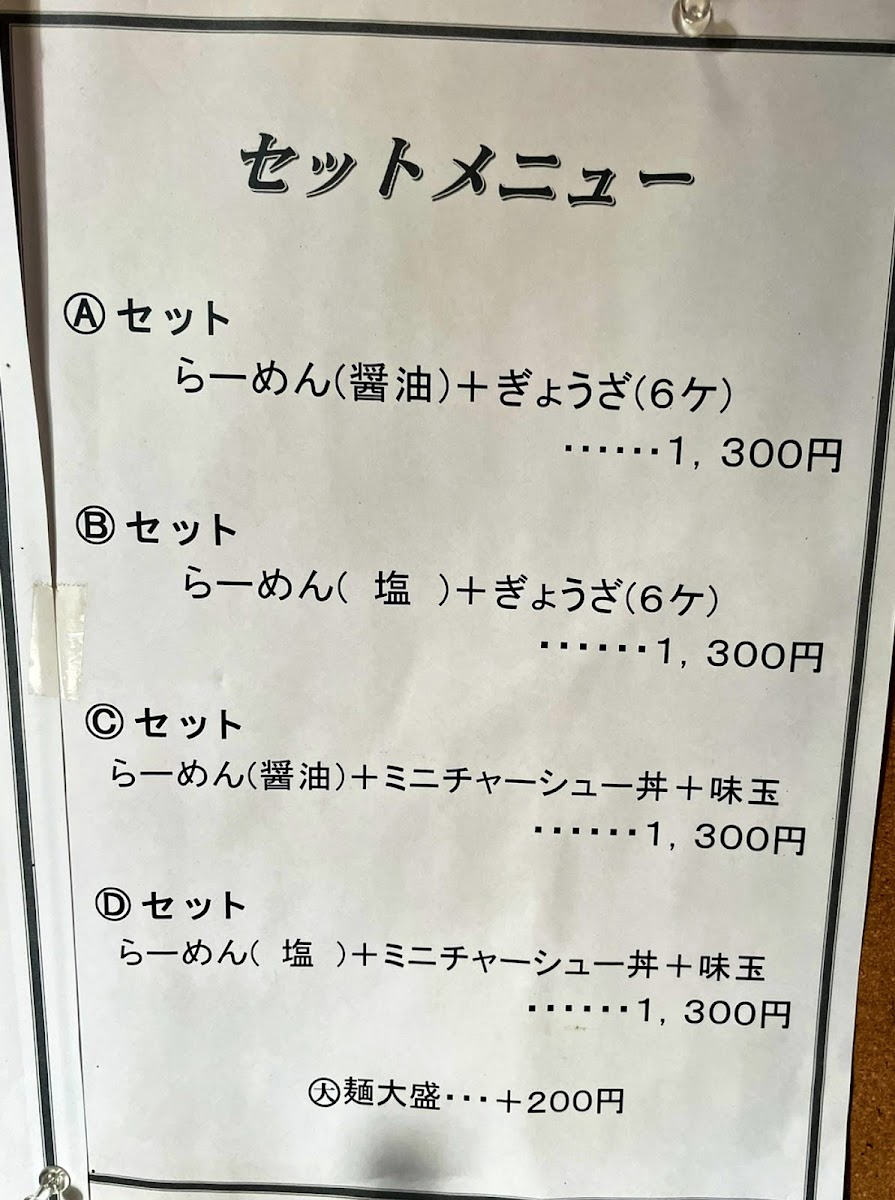 セットメニュー
Ⓐセット
らーめん(醤油)＋ぎょうざ(6ケ)
‥‥‥1，300円
Ⓑセット
らーめん( 塩 )＋ぎょうざ(6ケ)
‥‥‥1，300円
Ⓒセット
らーめん(醤油)＋ミニチャーシュー丼＋味玉
‥‥‥1，300円
Ⓓセット
らーめん( 塩 )＋ミニチャーシュー丼＋味玉
‥‥‥1，300円
㊅麺大盛…＋200円